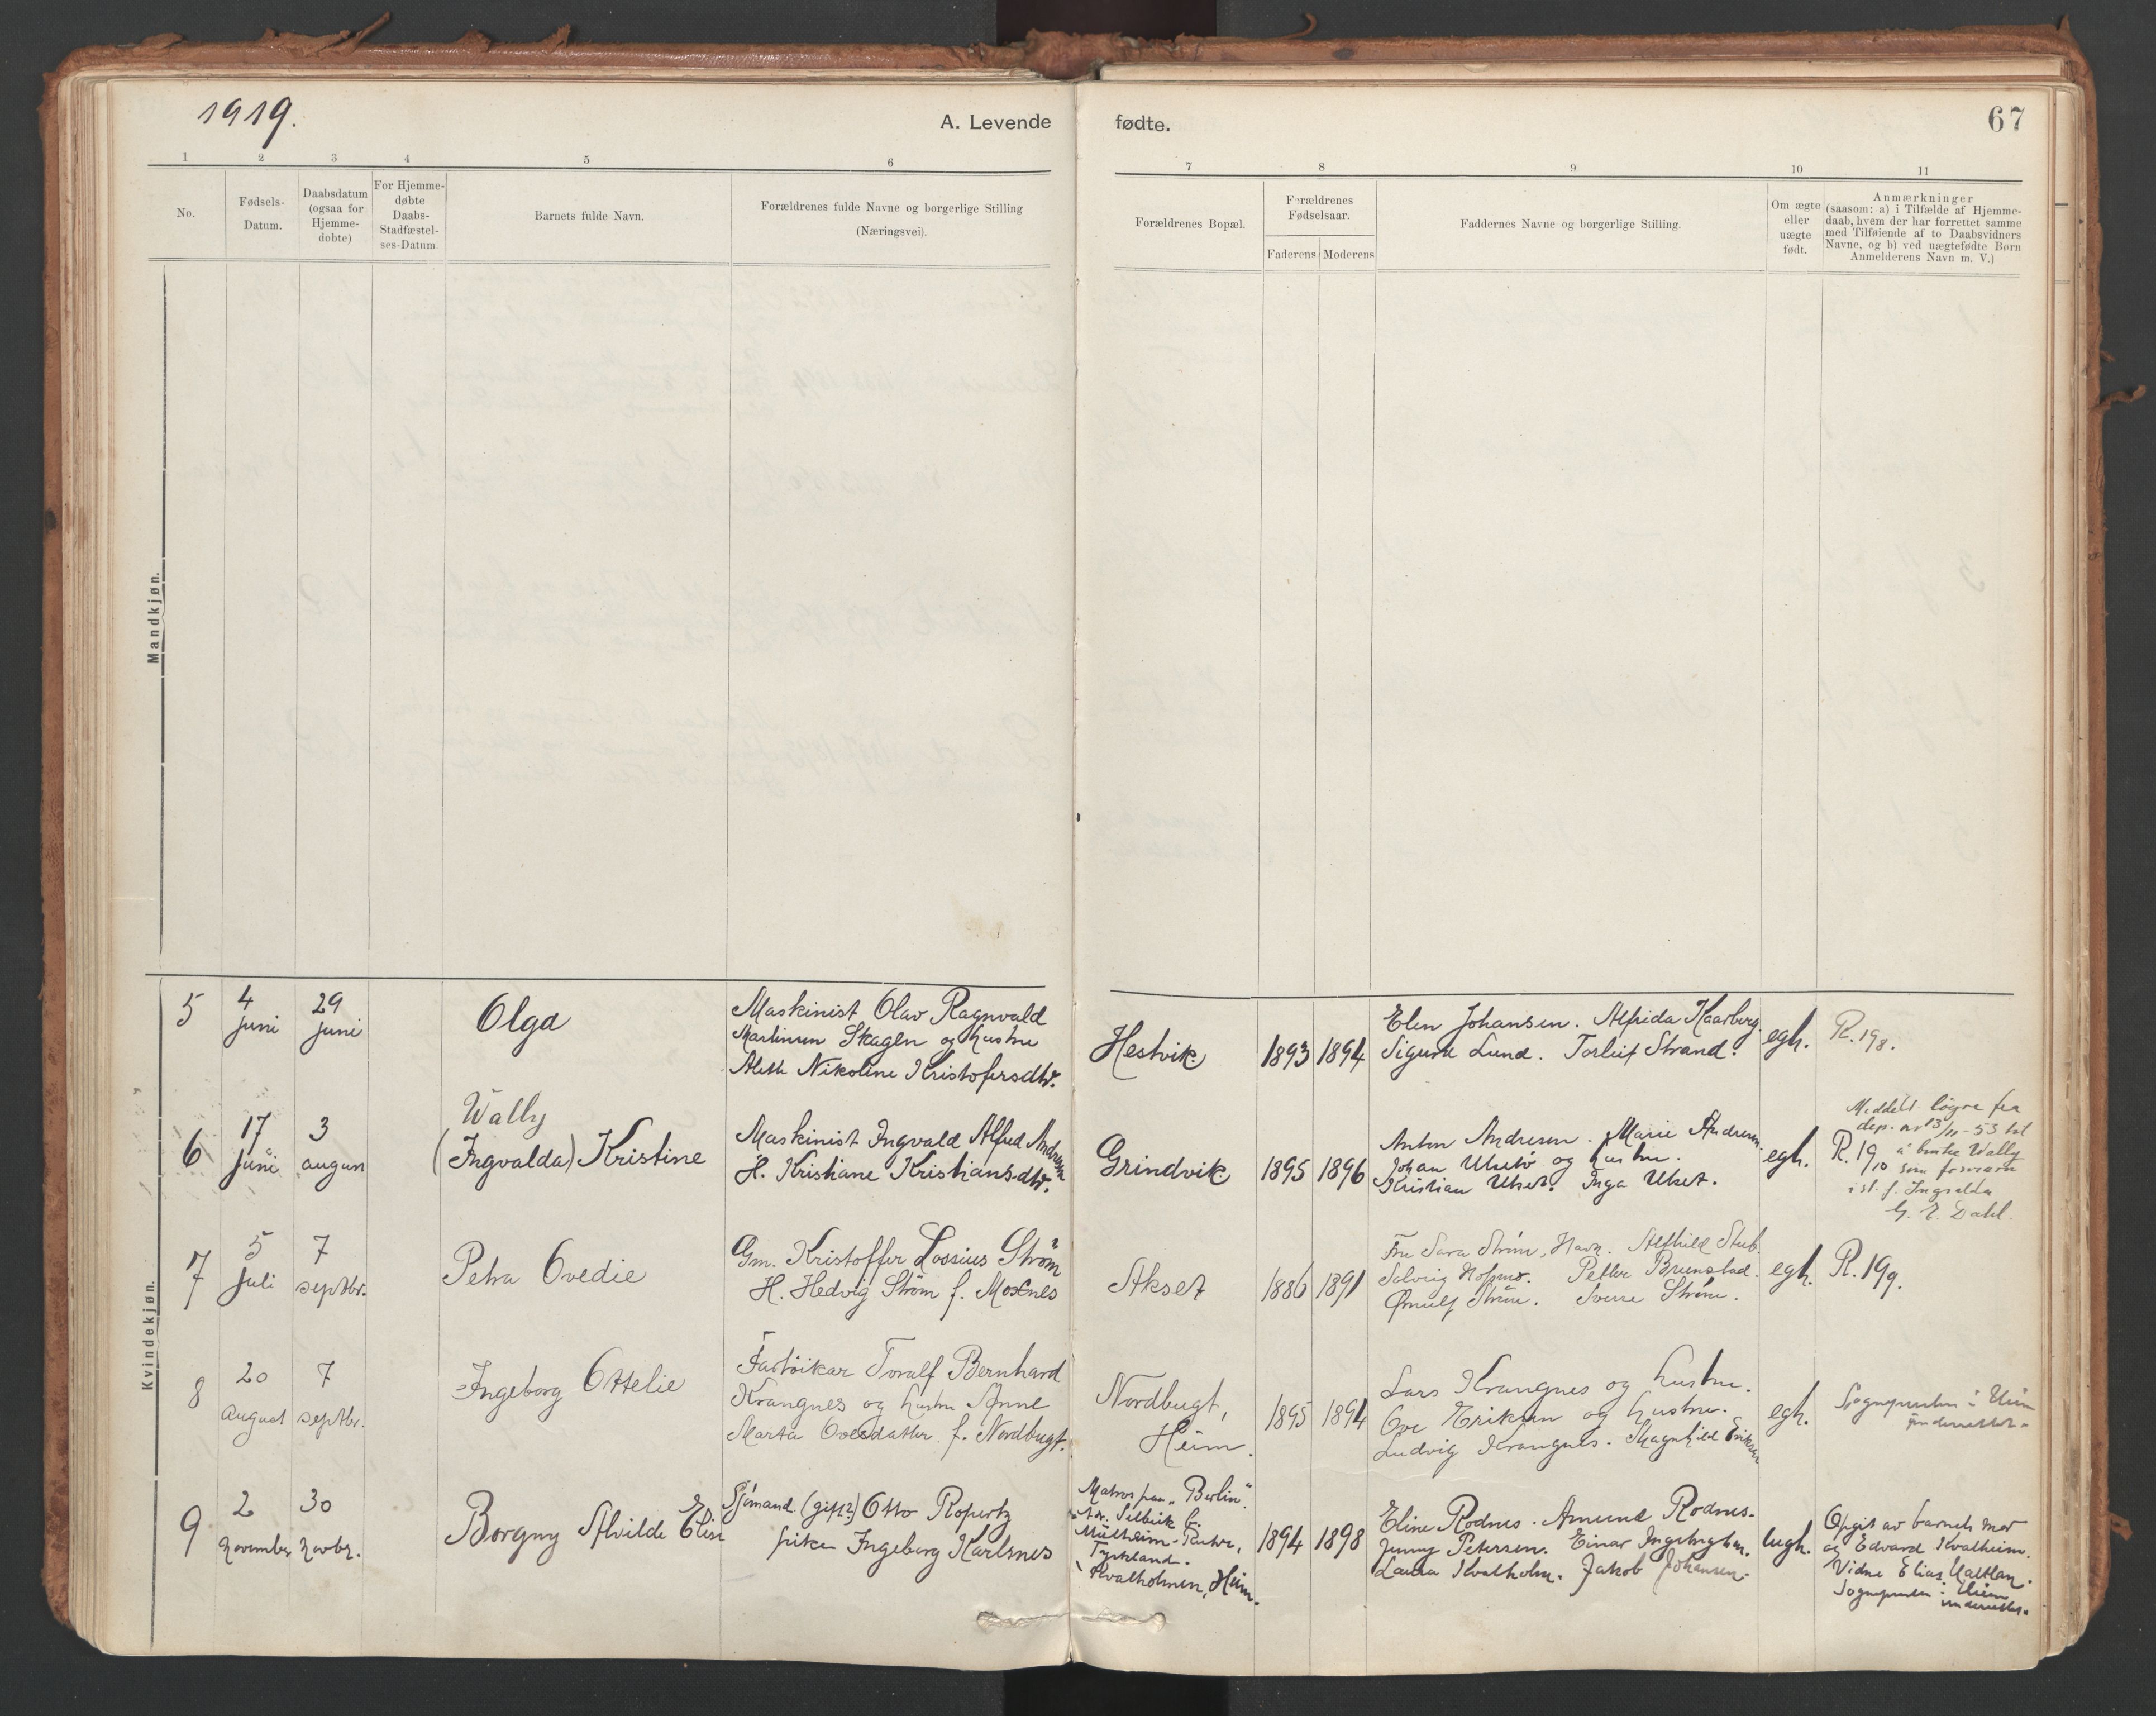 1919.
A. Levende fødte.
67
1 2 3 4 5 6 7 8 9 10 11
No.
Fødsels-
Datum.
Daabsdatum
(ogsaa for
Hjemme-
døbte)
For Hjemme-
døbte
Daabs-
Stadfæstel-
ses-Datum.
Barnets fulde Navn.
Forældrenes fulde Navne og borgerlige Stilling
(Næringsvei).
Forældrenes Bopæl.
Forældrenes
Fødselsaar.
Faderens Moderens
Faddernes Navne og borgerlige Stilling.
Om ægte
eller
uægte
født.
Anmærkninger
(saasom: a) i Tilfælde af Hjemme-
daab, hvem der har forrettet samme
med Tilføiende af to Daabsvidners
Navne, og b) ved uægtefødte Børn
Anmelderens Navn m. V.)
Mandkjøn.
Kvindekjøn.
5
4
juni
29
juni
Olga
Maskinist Olav Ragnvald
Martinsen Skagen og hustru
Aleth Nikoline Kristofersdtr.
Hestvik
1893 1894
Elen Johansen. Alfrida Kaarberg.
Sigurd Lund. Torleif Strand.
egh.
R. 198.
6
17
juni
3
august
Wally
(Ingvalda) Kristine
Maskinist Ingvald Alfred Andresen
H. Kristiane Kristiansdtr.
Grindvik
1895 1896
Anton Andresen. Marie Andresen.
Johan Ulsetø og hustru.
Kristian Ulset. Inga Ulset.
egh.
R. 19/10
Meddelt løyve fra
dep. av 13/11-53 til
å bruke Wally
som fornavn
i st. f. Ingvalda
G. E. Dahl.
7
5
juli
7
septbr.
Petra Ovedie
Gm. Kristoffer Lossius Strøm
H. Hedvig Strøm f. Moxnes
Akset
1886 1891
Fru Sara Strøm, Havn. Alfhild Stub.
Solveig Hofsmo. Petter Brunstad.
Ørnulf Strøm. Sverre Strøm.
egh.
R. 199.
8
20
august
7
septbr.
Ingeborg Ottelie
Toralf Bernhard
Krangnes og hustru Anne
Marta Ovedatter f. Nordbugt.
Nordbugt,
Heim.
1895 1894
Lars Krangnes og hustru.
Ove Eriksen og hustru.
Ludvig Krangnes. Magnhild Eriksen
egh.
Sognepresten i Heim
underrettet.
9
2
november
30
novbr.
Borgny Alvilde Elise
Sjømand (gift?) Otto Ropertz
pike Ingeborg Karlsnes
Matros paa "Berlin".
Mülheim
Tyskland.
Kvalholmen, Heim.
1894 1898
Eline Rodnes. Amund Rodnes.
Jenny Petersen. Einar Ingebrigtsen.
Laura Kvalholm. Jakob Johansen.
uegh.
Opgit av barnets mor
og Edvard Kvalheim.
Vidne Elias
Sognepresten i Heim
underrettet.